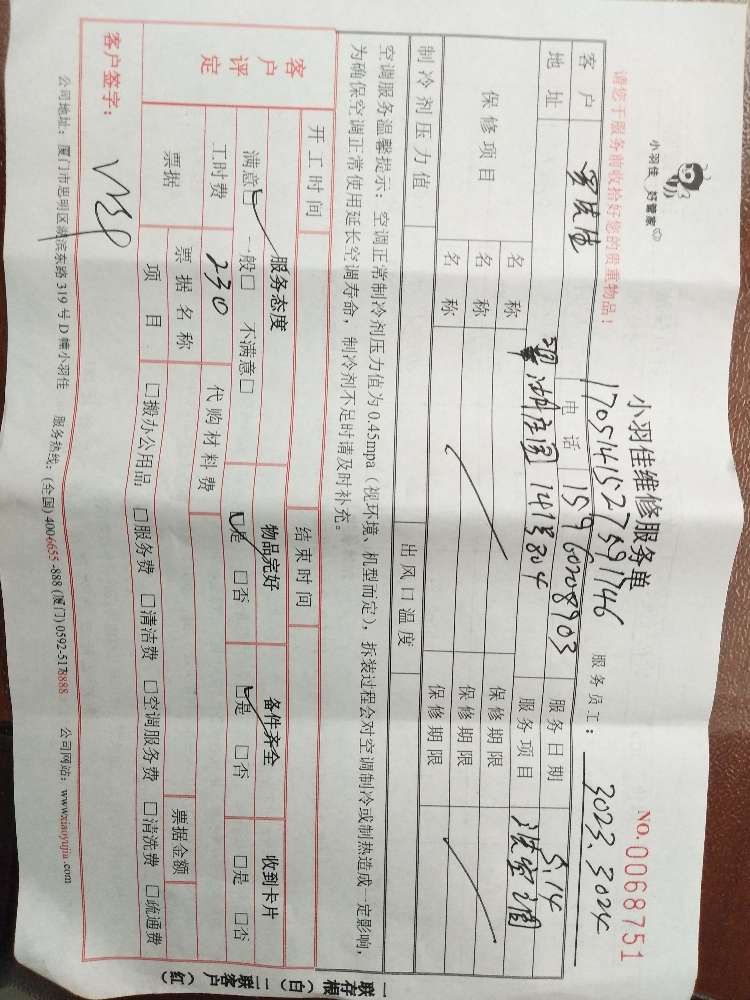 小羽佳 好管家
小羽佳维修服务单
NO.0068751
1705141527591746
请您于服务前收拾好您的贵重物品!
服务员工: 3023.3024
客户 电话 15960208903 服务日期 5.14
地址 湖庄园 14号804 服务项目 洗空调
保修项目 名称 保修期限
名称 保修期限
名称 保修期限
制冷剂压力值 出风口温度
空调服务温馨提示:空调正常制冷剂压力值为0.45mpa(视环境、机型而定),拆装过程会对空调制冷或制热造成一定影响,
为确保空调正常使用延长空调寿命,制冷剂不足时请及时补充。
开工时间 结束时间
客户评定 服务态度 物品完好 备件齐全 收到卡片
满意□ 一般□ 不满意□ □是 □否 □是 □否 □是 □否
工时费 230 代购材料费
票据 票据名称 票据金额
项目 □搬办公用品 □服务费 □清洁费 □空调服务费 □清洗费 □疏通费
客户签字:
公司地址:厦门市思明区湖滨东路319号D幢小羽佳 服务热线:(全国)4006655-888(厦门)0592-5178888 公司网站:www.xiaoyujia.com
一联存根(白)二联客户(红)